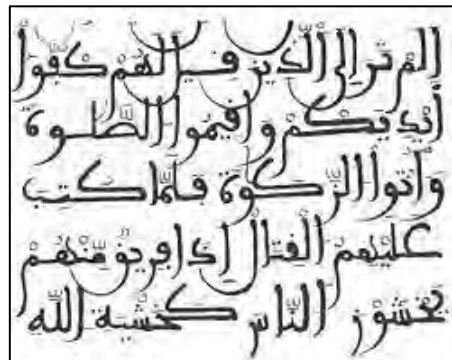 ألم تر إلى الذين قيل لهم كفوا
أيديكم وأقيموا الصلوة
وءاتوا الزكوة فلما كتب
عليهم القتال إذا فريق منهم
يخشون الناس كخشية الله